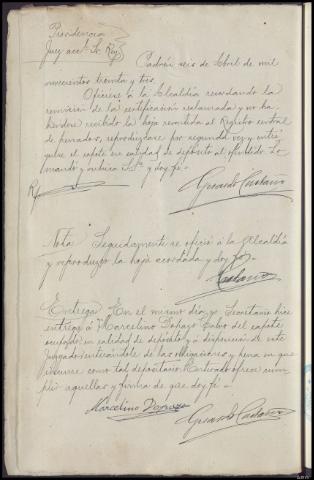 Providencia
Juez acctl. Sr. Rey
Padrón seis de Abril de mil
novecientos treinta y tres.
Ofíciese a la Alcaldía recordando la
remisión de la certificación reclamada y no ha-
biéndose recibido la hoja remitida al Registro central
de penados, reprodúzcase por segunda vez y entré-
guese el capote en calidad de depósito al
mandó y rubrica S.Sª y doy fé.-
Gerardo Castaño
Nota: Seguidamente se ofició á la Alcaldía
y reprodujo la hoja acordada y doy fé.-
Castaño
Entrega: En el mismo día yo Secretario hice
entrega á Marcelino Dopazo del capote
ocupado en calidad de depósito y á disposición de este
Juzgado enterándole de las obligaciones y pena en que
incurre como tal depositario. Enterado ofrece cum-
plir aquellas y firma de que doy fé.-
Marcelino Dopazo
Gerardo Castaño